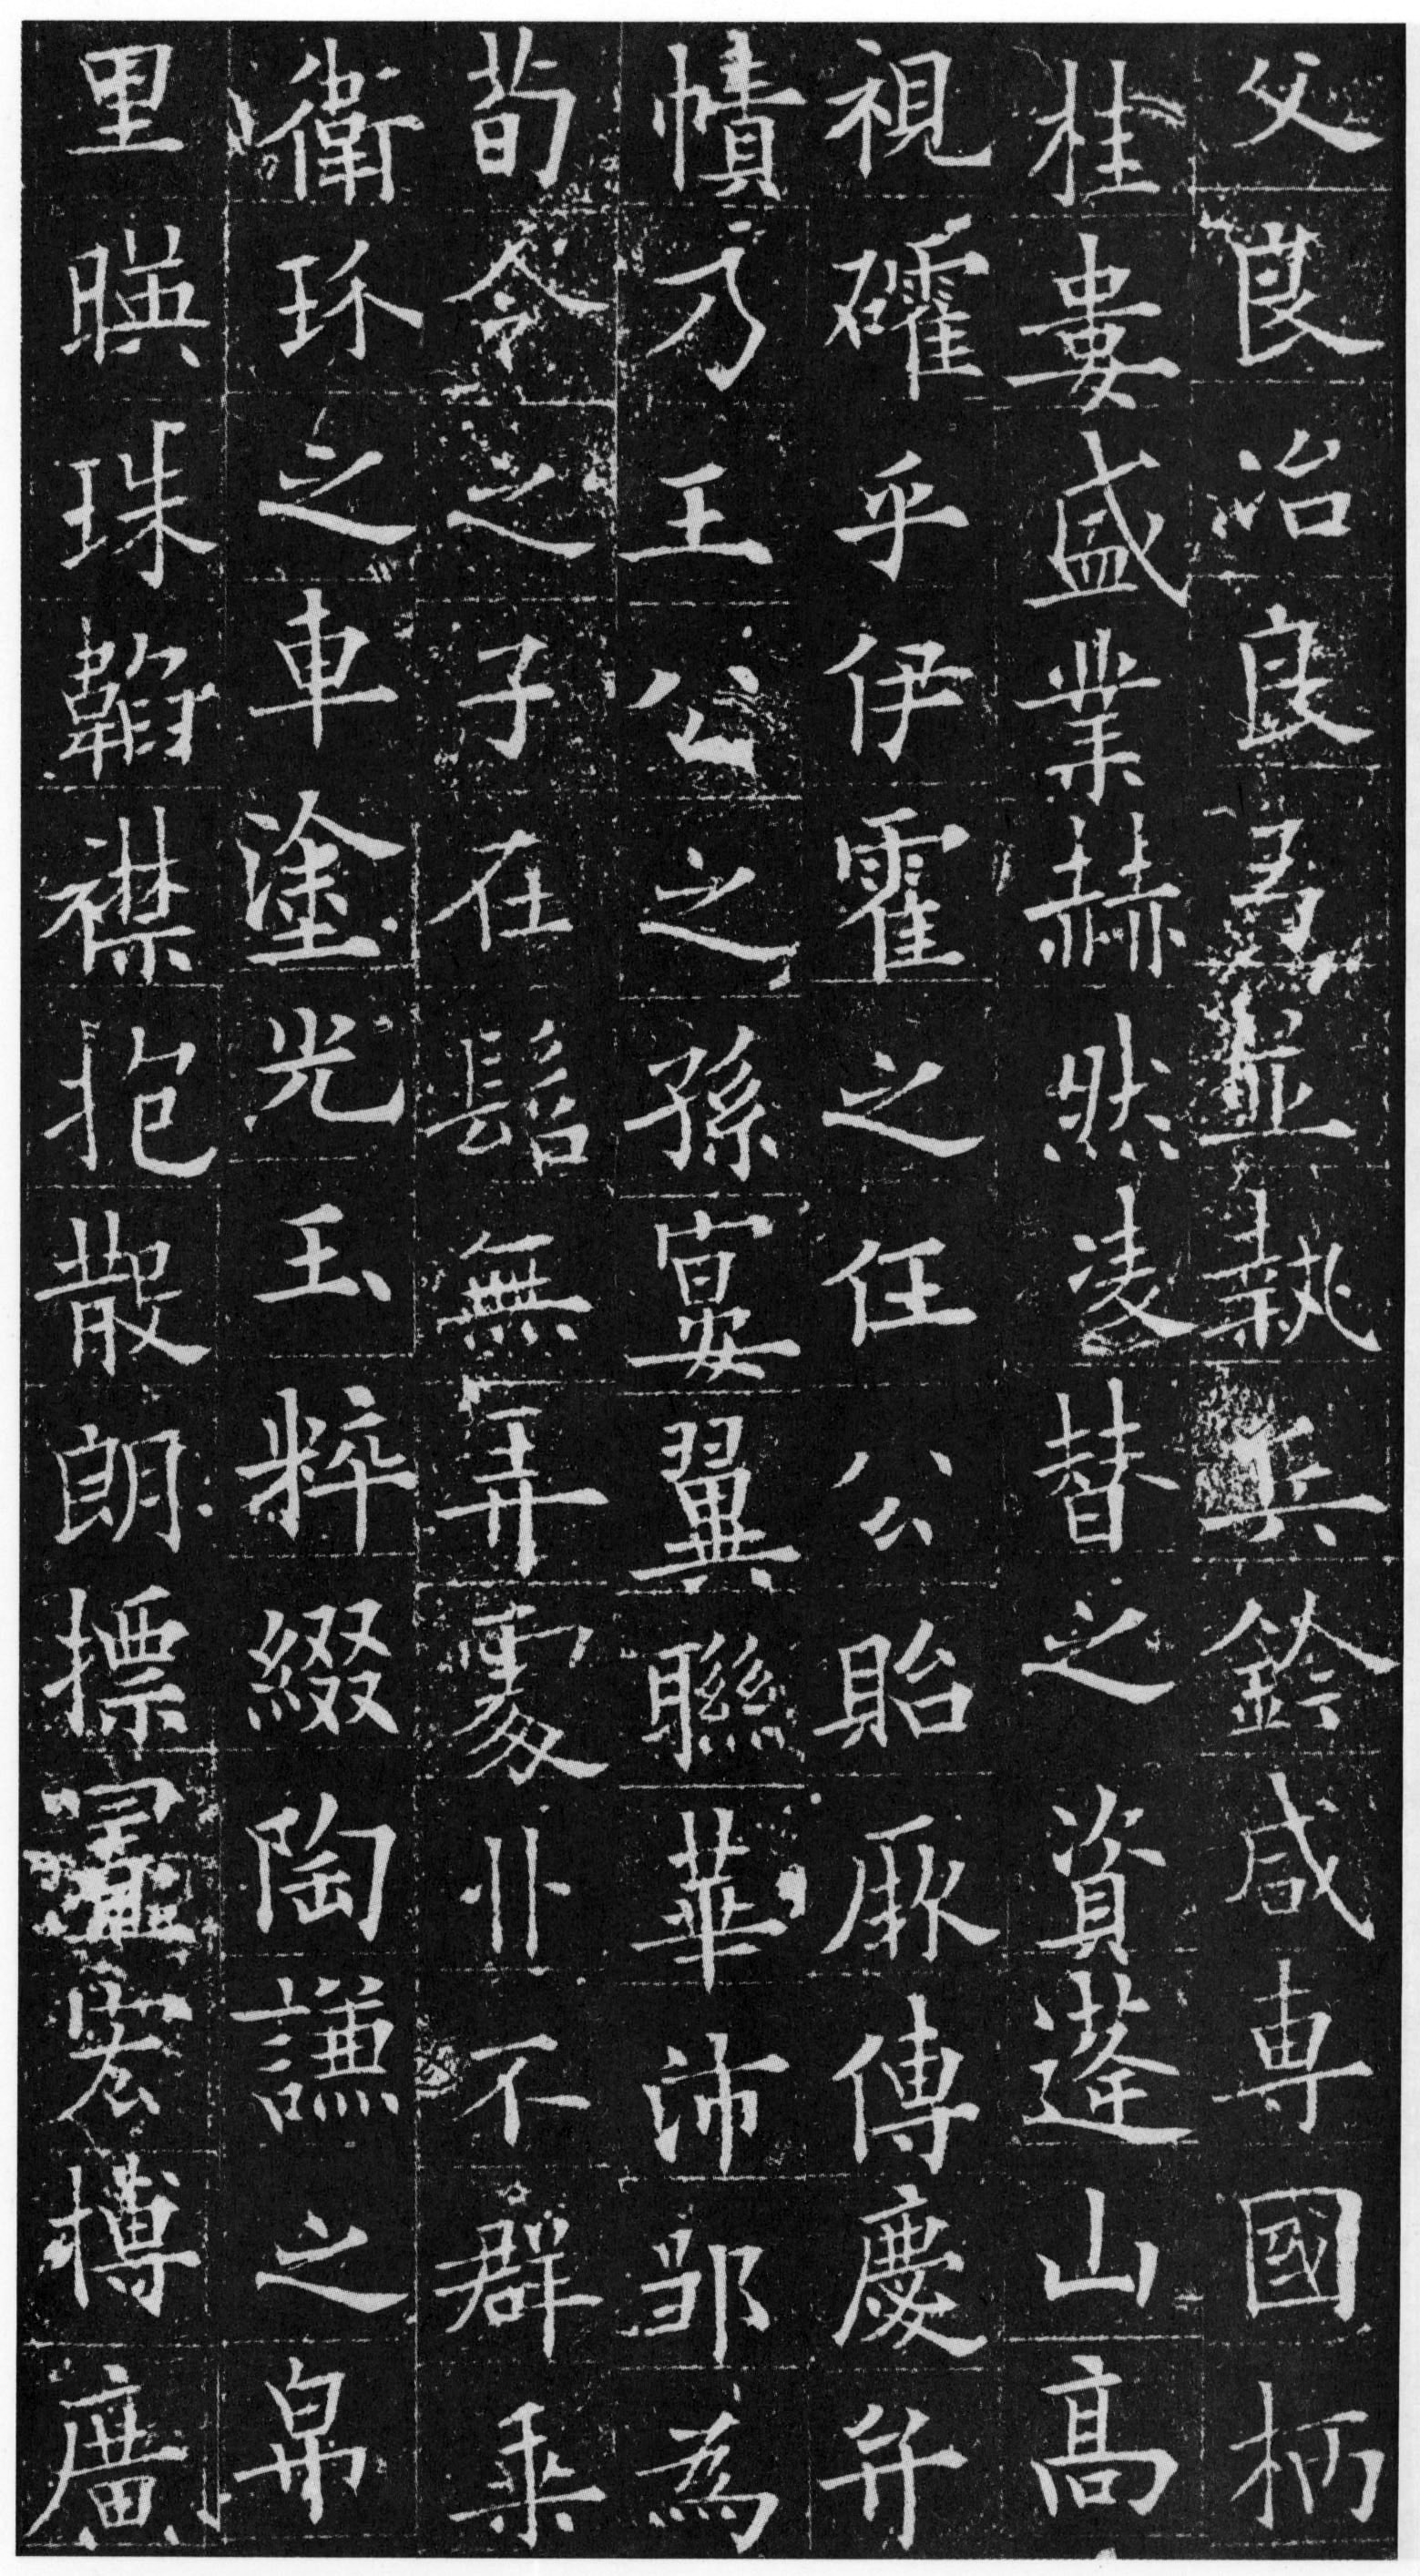 父良冶良弓並執兵鈐咸專國柄
桂婁盛業赫然凌替之資蓬山高
視礭乎伊霍之任公貽厥傳慶弁
幘乃王公之孫宴翼聯華沛鄒為
荀令之子在髫無弄處丱不群乘
衛玠之車塗光玉粹綴陶謙之帛
里暎珠韜襟抱散朗摽宏博廣